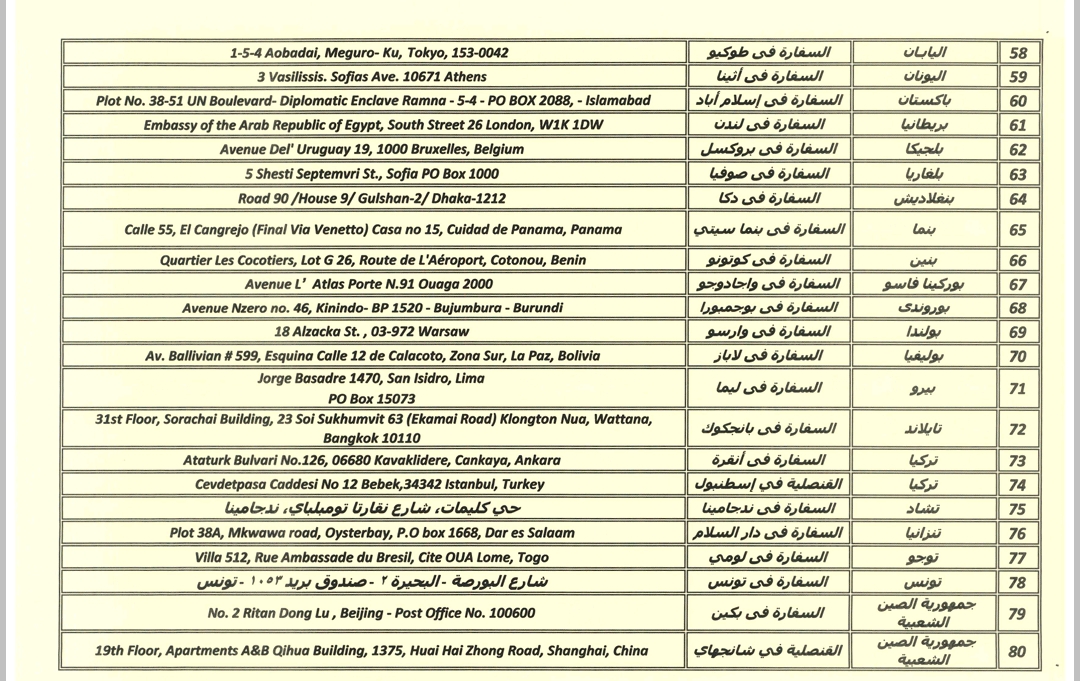 58 اليابان السفارة فى طوكيو 1-5-4 Aobadai, Meguro- Ku, Tokyo, 153-0042
59 اليونان السفارة فى أثينا 3 Vasilissis. Sofias Ave. 10671 Athens
60 باكستان السفارة فى إسلام أباد Plot No. 38-51 UN Boulevard- Diplomatic Enclave Ramna - 5-4 - PO BOX 2088, - Islamabad
61 بريطانيا السفارة فى لندن Embassy of the Arab Republic of Egypt, South Street 26 London, W1K 1DW
62 بلجيكا السفارة فى بروكسل Avenue Del' Uruguay 19, 1000 Bruxelles, Belgium
63 بلغاريا السفارة فى صوفيا 5 Shesti Septemvri St., Sofia PO Box 1000
64 بنغلاديش السفارة فى دكا Road 90 /House 9/ Gulshan-2/ Dhaka-1212
65 بنما السفارة فى بنما سيتي Calle 55, El Cangrejo (Final Via Venetto) Casa no 15, Cuidad de Panama, Panama
66 بنين السفارة فى كوتونو Quartier Les Cocotiers, Lot G 26, Route de L'Aéroport, Cotonou, Benin
67 بوركينا فاسو السفارة فى واجادوجو Avenue L’ Atlas Porte N.91 Ouaga 2000
68 بوروندى السفارة فى بوجمبورا Avenue Nzero no. 46, Kinindo- BP 1520 - Bujumbura - Burundi
69 بولندا السفارة فى وارسو 18 Alzacka St. , 03-972 Warsaw
70 بوليفيا السفارة فى لاباز Av. Ballivian # 599, Esquina Calle 12 de Calacoto, Zona Sur, La Paz, Bolivia
71 بيرو السفارة فى ليما Jorge Basadre 1470, San Isidro, Lima
PO Box 15073
72 تايلاند السفارة فى بانجكوك 31st Floor, Sorachai Building, 23 Soi Sukhumvit 63 (Ekamai Road) Klongton Nua, Wattana,
Bangkok 10110
73 تركيا السفارة فى أنقرة Ataturk Bulvari No.126, 06680 Kavaklidere, Cankaya, Ankara
74 تركيا القنصلية في إسطنبول Cevdetpasa Caddesi No 12 Bebek,34342 Istanbul, Turkey
75 تشاد السفارة فى ندجامينا حي كليمات، شارع نقارتا تومبلباي، ندجامينا
76 تنزانيا السفارة فى دار السلام Plot 38A, Mkwawa road, Oysterbay, P.O box 1668, Dar es Salaam
77 توجو السفارة فى لومي Villa 512, Rue Ambassade du Bresil, Cite OUA Lome, Togo
78 تونس السفارة فى تونس شارع البورصة - البحيرة ٢ - صندوق بريد ١٠٥٣ - تونس
79 جمهورية الصين
الشعبية السفارة فى بكين No. 2 Ritan Dong Lu , Beijing - Post Office No. 100600
80 جمهورية الصين
الشعبية القنصلية في شانجهاي 19th Floor, Apartments A&B Qihua Building, 1375, Huai Hai Zhong Road, Shanghai, China